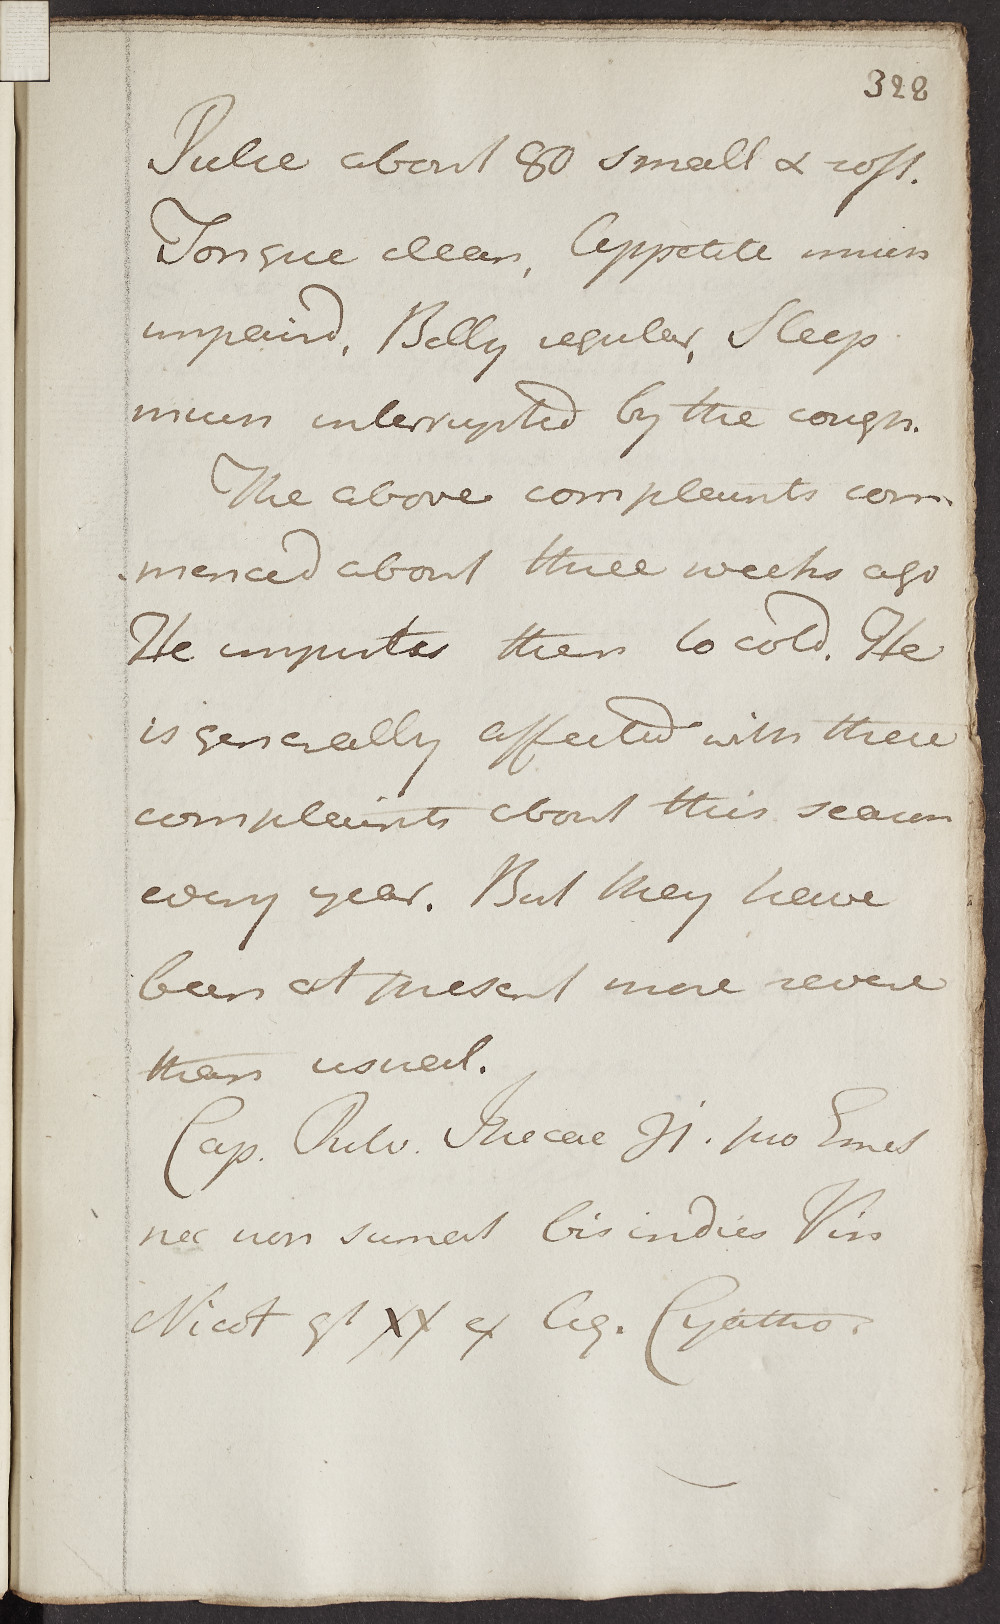 328
Pulse about 80 small & soft.
Tongue clean, Appetite much
impaird, Belly regular, Sleep
much interrupted by the cough.
The above complaints com-
menced about three weeks ago
He imputes them to cold. He
is generally affected with these
complaints about this season
every year. But they have
been at present more severe
than usual.
Cap. Pulv. Ipecac ʒj. pro Emet
nec non sumat bis indies Vin
Nicot gt XX ex Aq. Cyatho.